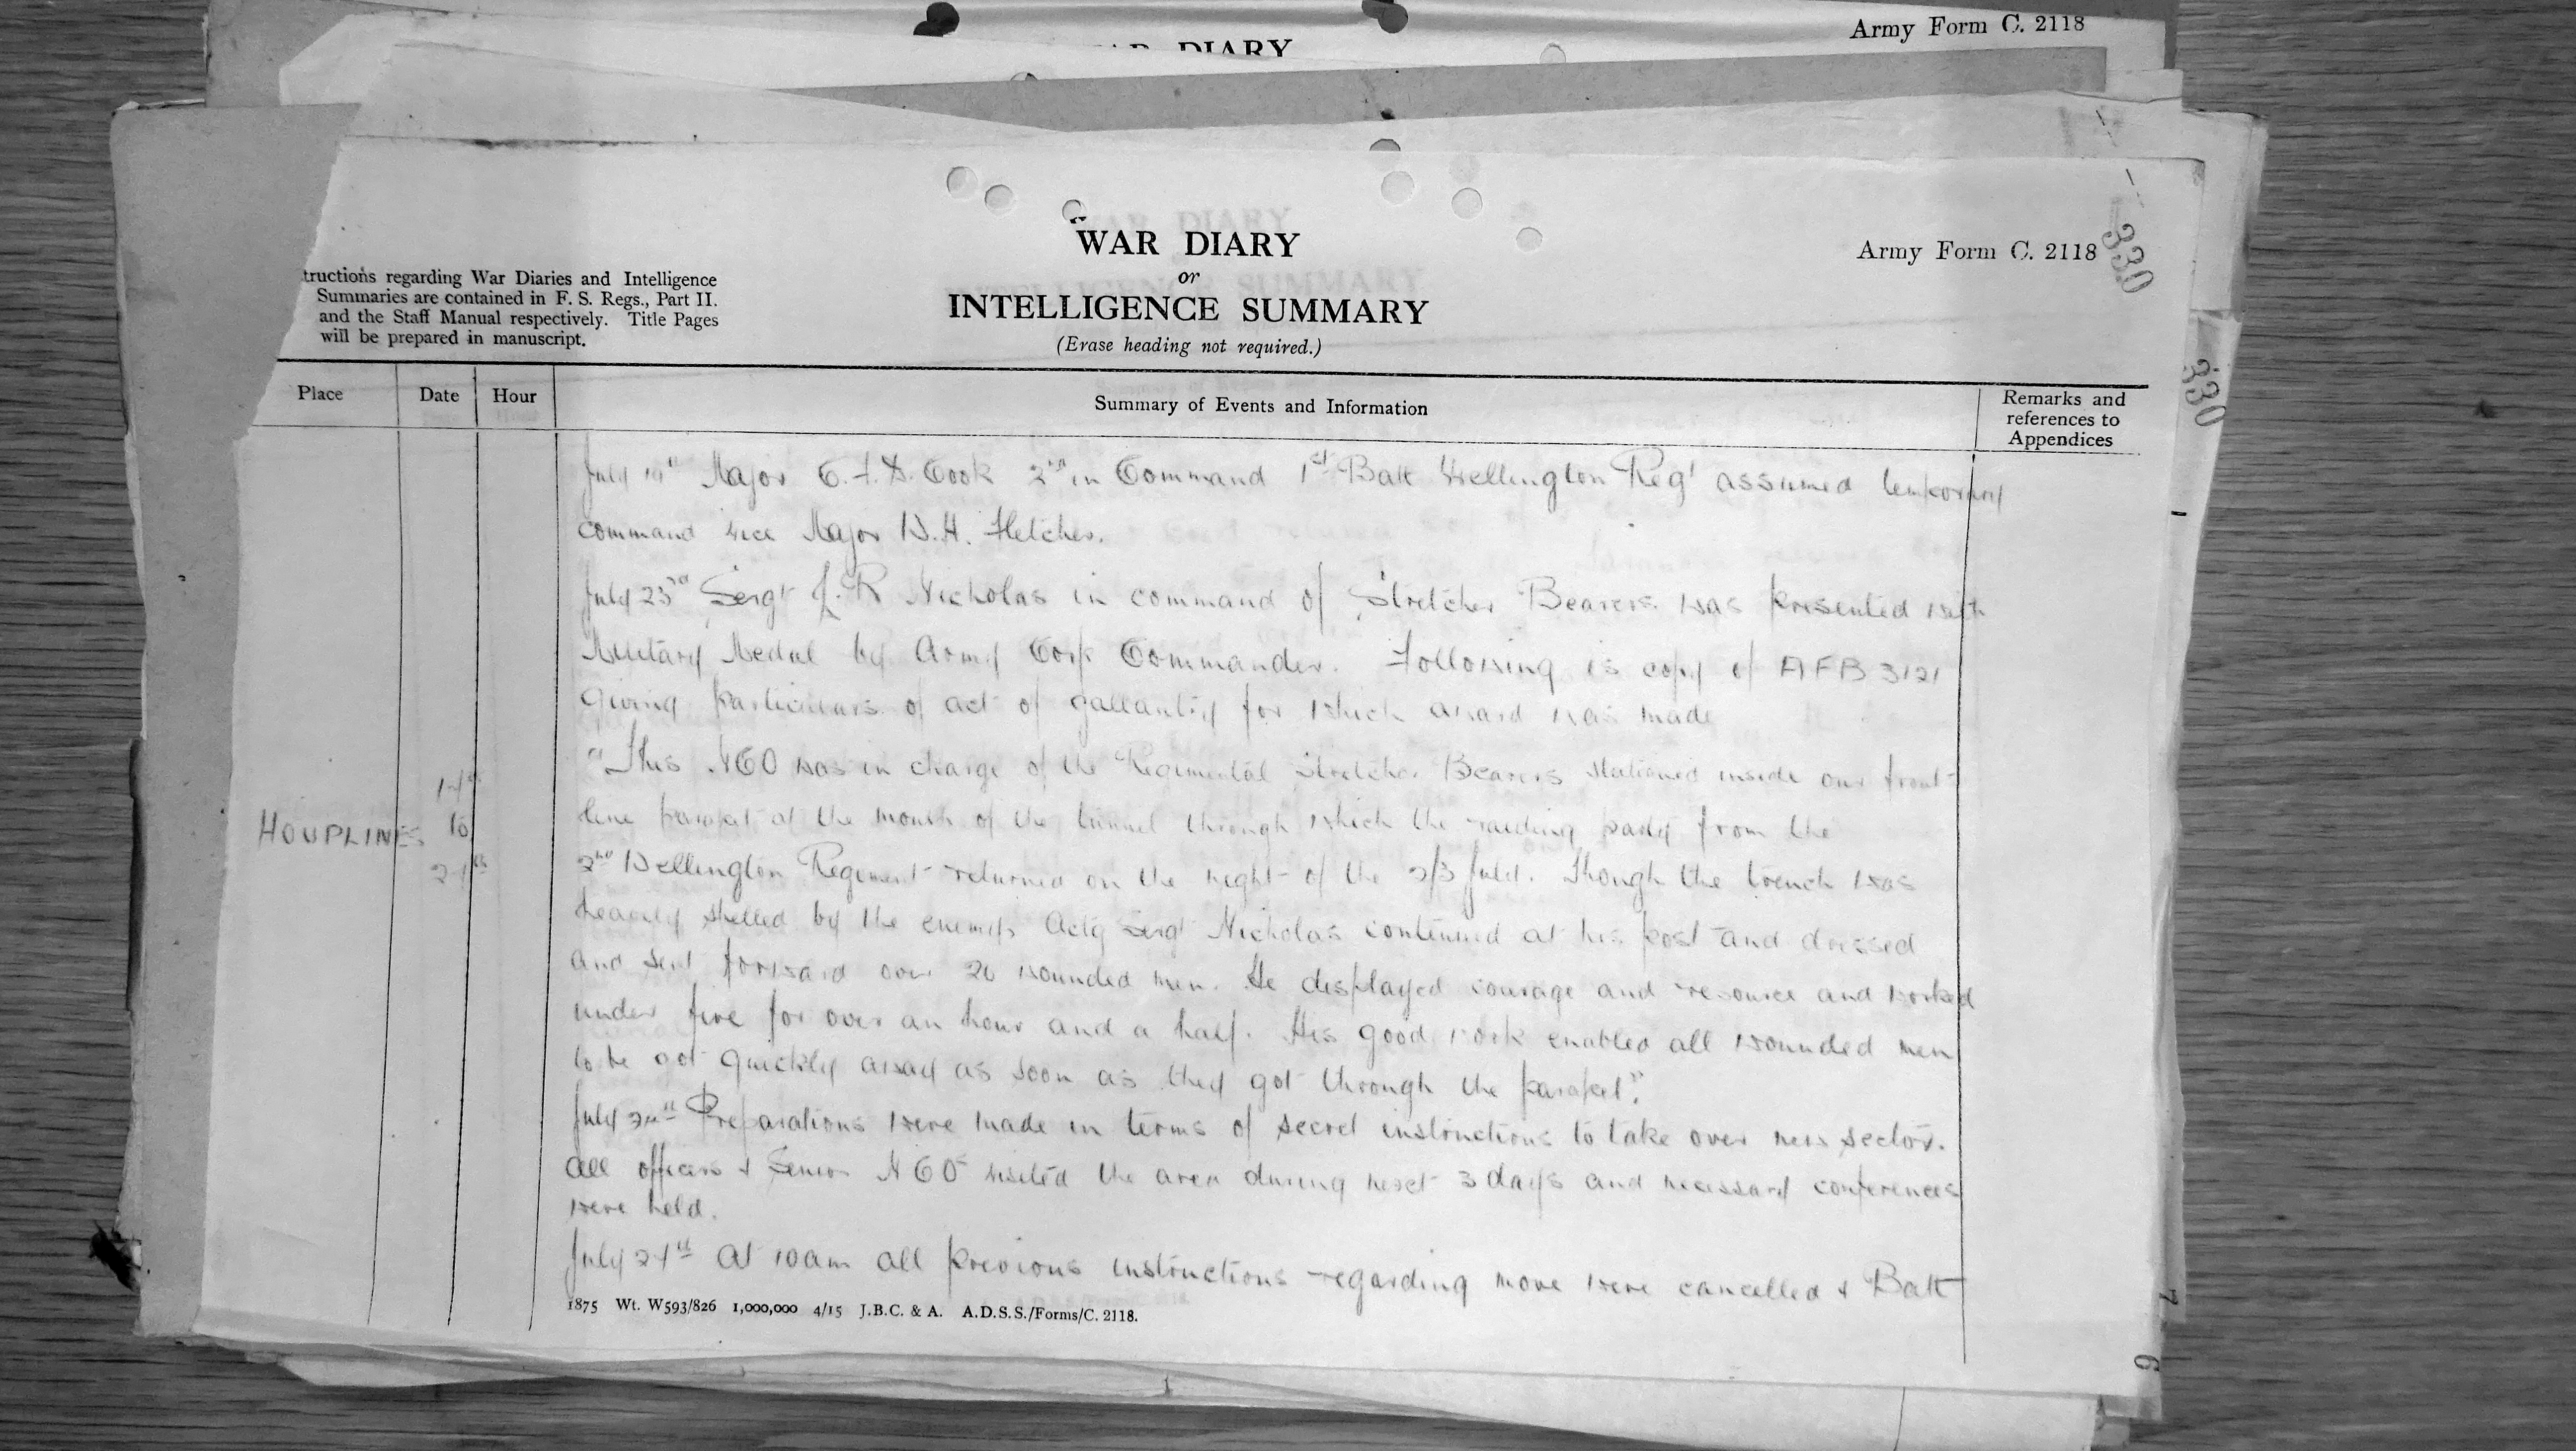 Army Form C. 2118
WAR DIARY
WAR DIARY
or
INTELLIGENCE SUMMARY
(Erase heading not required.)
Army Form C. 2118
330
330
tructions regarding War Diaries and Intelligence
Summaries are contained in F. S. Regs., Part II.
and the Staff Manual respectively. Title Pages
will be prepared in manuscript.
Place Date Hour Summary of Events and Information Remarks and
references to
Appendices
July Major C. F. D. Cook 2nd in Command 1st Batt Wellington Regt assumed temporary
command vice Major W.H. Fletcher.
July 23rd Sergt J. R Nicholas in command of Stretcher Bearers was presented with
Military Medal by Army Corp Commander. Following is copy of AFB 3121
giving particulars of act of gallantry for which award was made
"This NCO was in charge of the Regimental Stretcher Bearers stationed inside our front-
line parapet at the mouth of the tunnel through which the raiding party from the
2nd Wellington Regiment returned on the night of the 2/3 July. Though the trench was
heavily shelled by the enemy Actg Sergt Nicholas continued at his post and dressed
and sent forward over 20 wounded men. He displayed courage and resource and worked
under fire for over an hour and a half. His good work enabled all wounded men
to be got quickly away as soon as they got through the parapet".
HOUPLINES
to
July Preparations were made in terms of secret instructions to take over new sector.
All officers & Senior NCOs visited the area during next 3 days and necessary conferences
were held.
July At 10am all previous instructions regarding move were cancelled & Batt
1875 Wt. W593/826 1,000,000 4/15 J.B.C. & A. A.D.S.S./Forms/C. 2118.
7
6